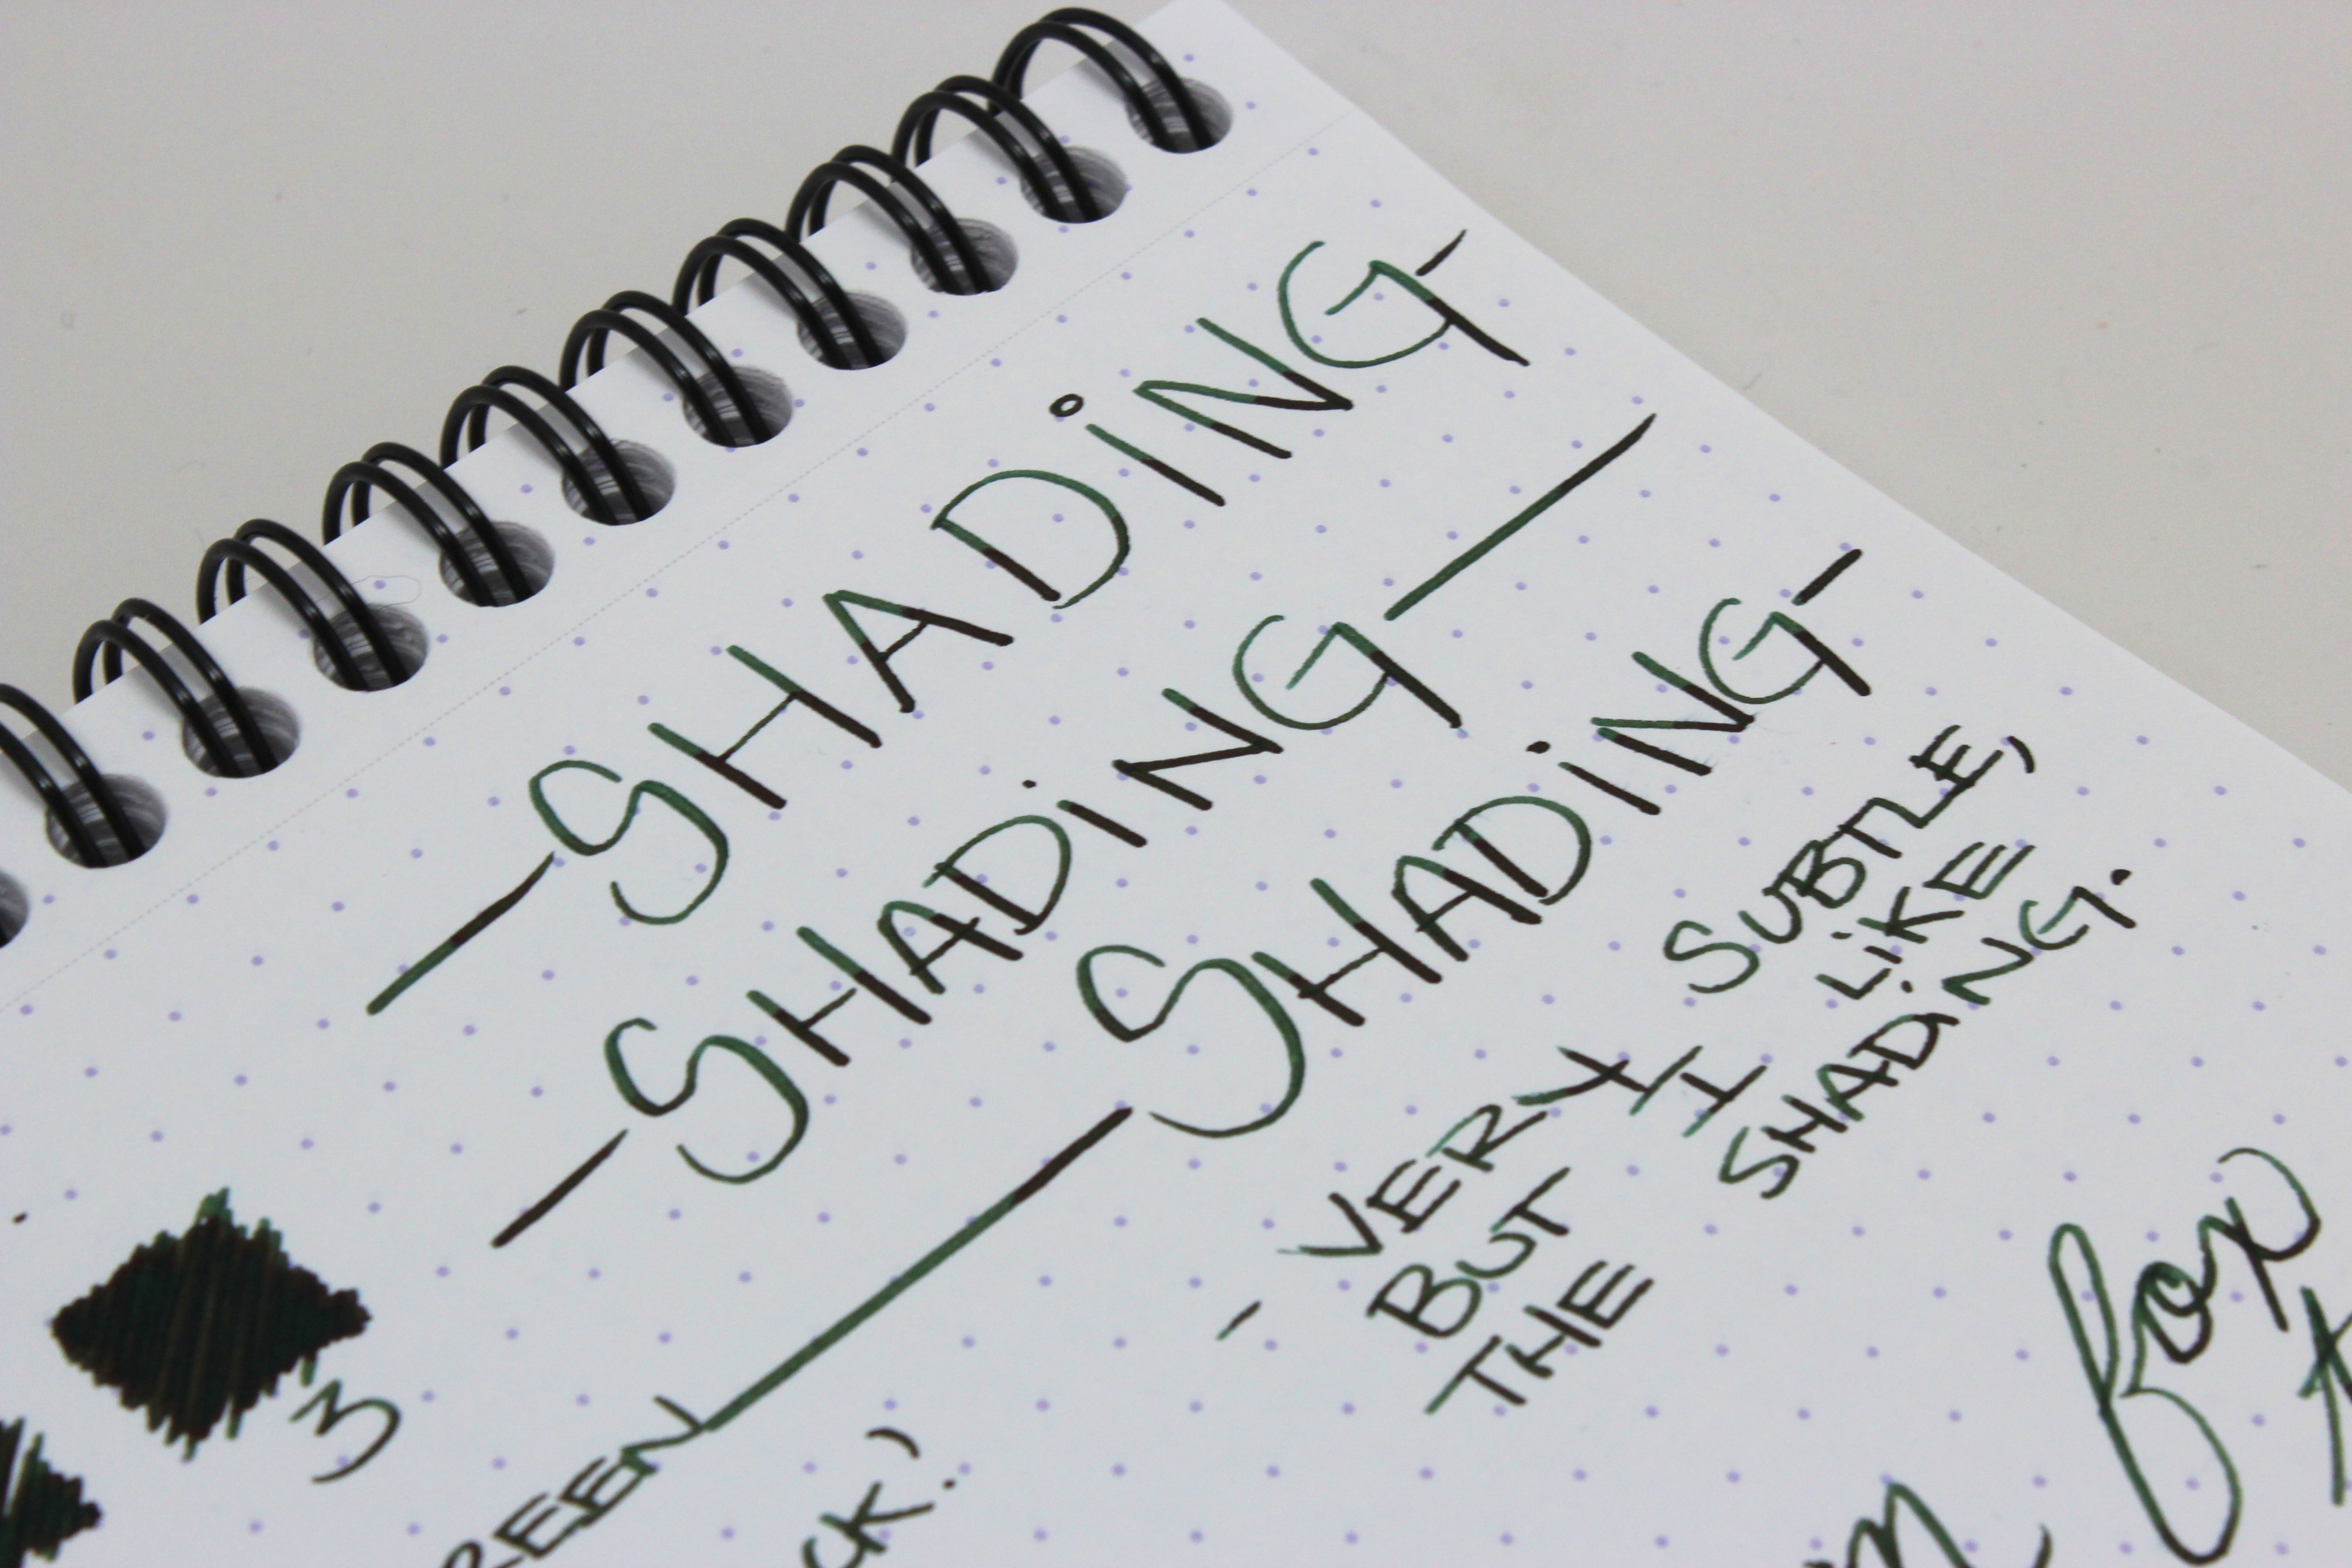 — SHADiNG -
- SHADiNG —
— SHADiNG -
- VERY SUBTLE,
BUT I LIKE
THE SHADiNG.
3
REEN
CK.)
fox